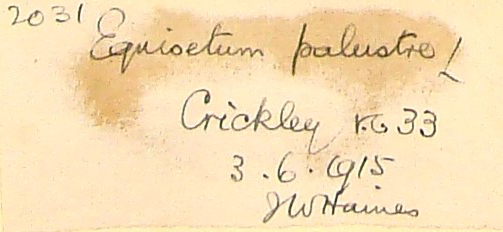 2031
Equisetum palustre L
Crickley v.c. 33
3.6.1915
J W Haines